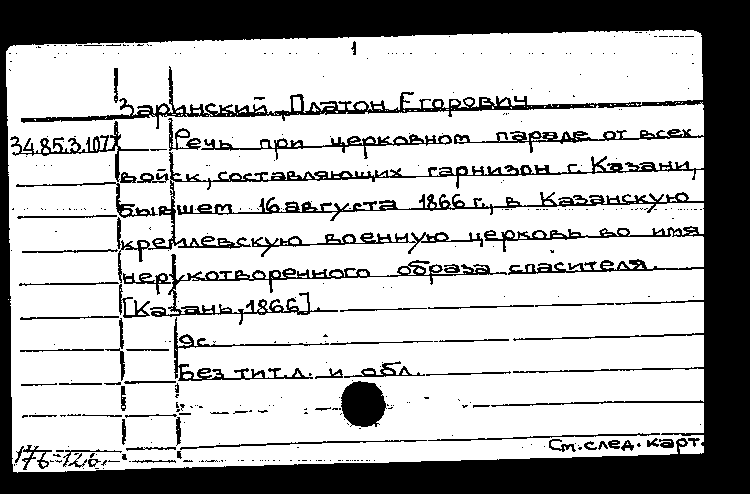 1
Заринский, Платон Егорович
34.85.3.1077 Речь при церковном параде от всех
войск, составляющих гарнизон г. Казани,
бывшем 16 августа 1866 г., в Казанскую
кремлевскую военную церковь во имя
нерукотворенного образа спасителя.
[Казань, 1866].
9с.
Без тит.л. и обл.
См.след.карт.
176-126.